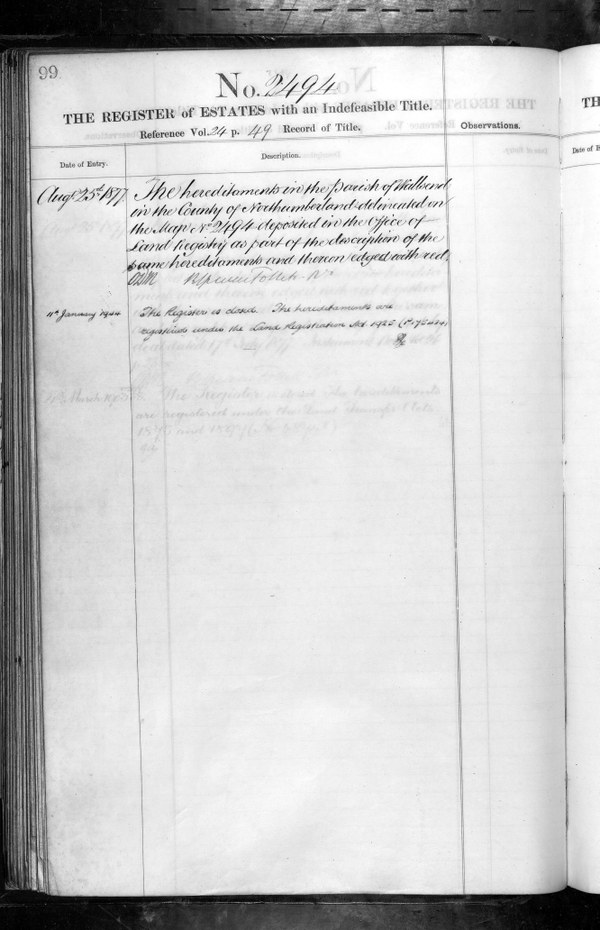 99
No. 2494
THE REGISTER of ESTATES with an Indefeasible Title.
Reference Vol. 24 p. 49 Record of Title.
Observations.
Date of Entry.
Description.
Augt 25th 1877.
The hereditaments in the Parish of Wallsend
in the County of Northumberland delineated on
the Map No 2494 deposited in the Office of
Land Registry as part of the description of the
same hereditaments and thereon edged with red.
Follett
11th January 1944
The Register is closed. The hereditaments are
registered under the Land Registration Act 1925
TH
Date of E